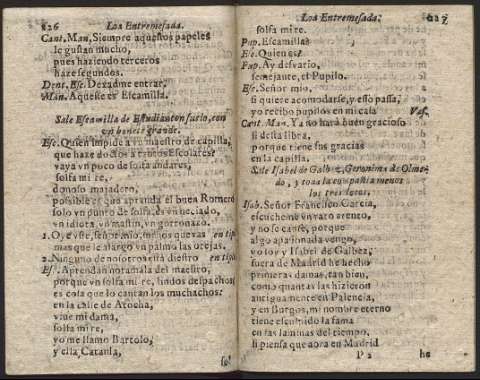 226 Loa Entremesada.
Cant. Man. Siempre aquestos papeles
le gustan mucho,
pues haziendo terceros
haze segundos.
Dent. Esc. Dexadme entrar.
Man. Aqueste es Escamilla.
Sale Escamilla de Estudianton sucio, con
vn bonete grande.
Esc. Quien impide a vn maestro de capilla,
que haze doctos a
vaya vn poco de solfa
solfa mi re,
donoso majadero,
possible es que aprenda el buen Romero
solo vn punto de solfa, es vn neciado,
vn idiota, vn mastin, vn gorronazo.
1. Oyes que vas en tip
mas que le alargo vn palmo las orejas.
2. Ninguno de nosotros està diestro en tip
Es. Aprendan noramala del maestro,
porque vn solfa mi re, lindos despachos
es cosa que lo cantan los muchachos:
en la calle de Atocha,
viue mi dama,
solfa mi re,
yo me llamo Bartolo,
y ella Catanla,
sol
Loa Entremesada. 227
solfa mi re.
Pup. Escamilla?
Es. Quien es?
Pup. Ay desvario,
semejante, el Pupilo.
Esc. Señor mio,
si quiere acomodarse, y esso passa,
yo recibo pupilos en mi casa Vas.
Cant. Man. Ya no harà buen gracioso
si desta libra,
porque tiene sus gracias
en la capilla.
Sale Isabel de Galbez, Geronima de Olmedo,
y toda la compañia menos
los tres
Isab. Señor Francisco Garcia,
escucheme vn raro atento,
y no se canse, porque
algo apassionada vengo,
yo soy Isabel de Galbez,
fuera de Madrid he hecho
primeras damas, tan bien,
como quantas las hizieron
antiguamente en Palencia,
y en Burgos, mi nombre eterno
tiene esculpido la fama
en las laminas del tiempo,
si piensa que aora en Madrid
P 2 he